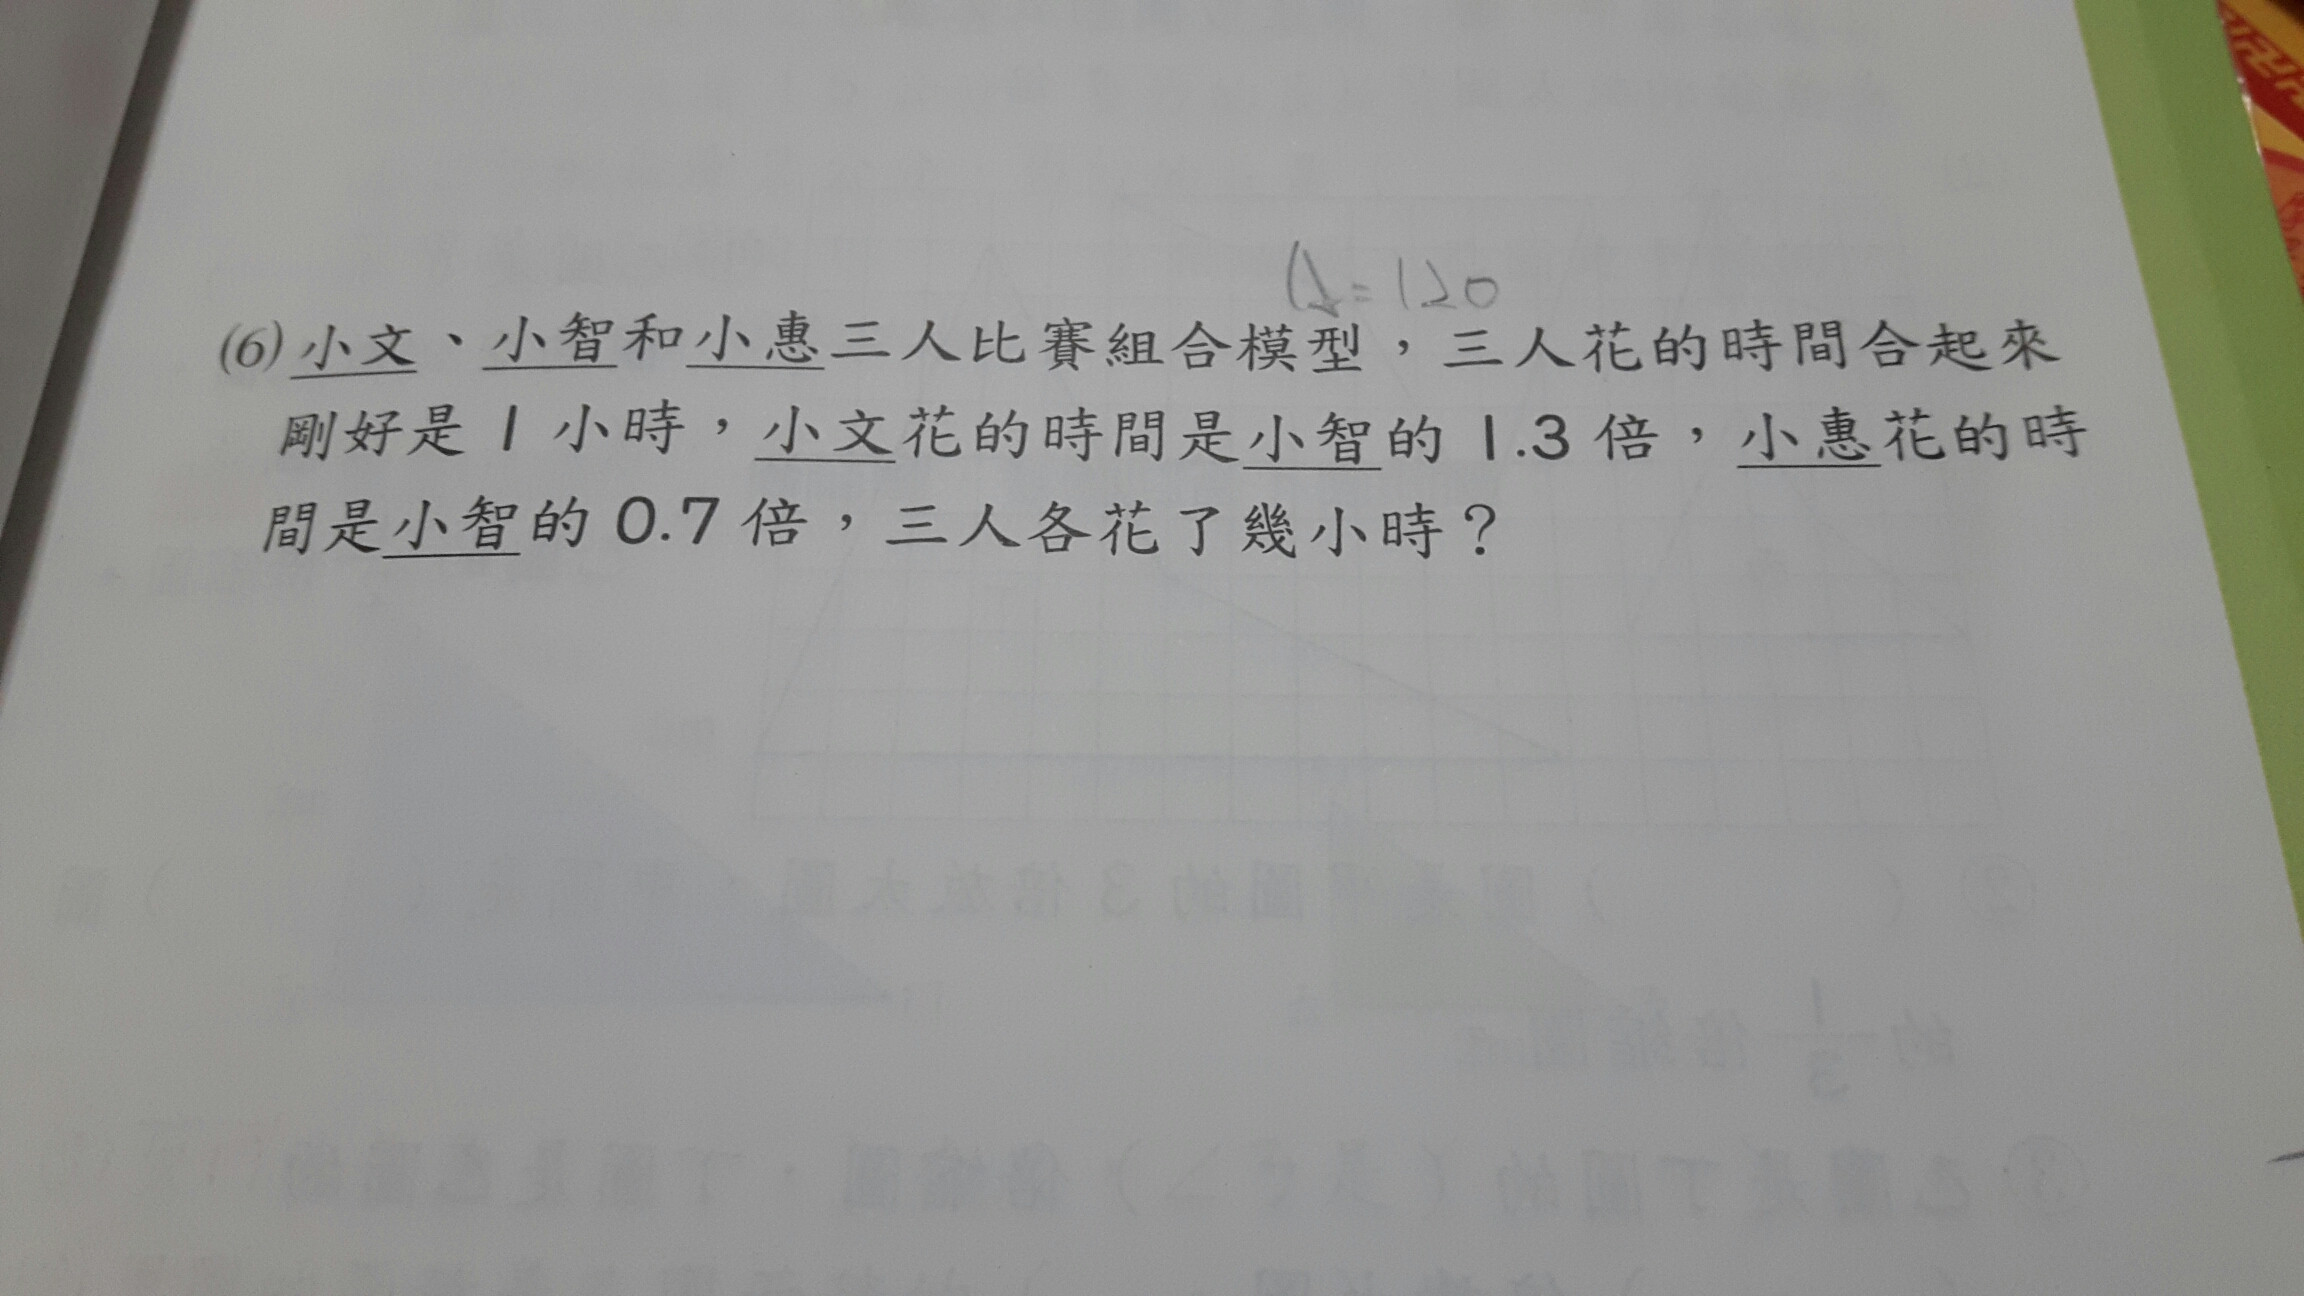 =120
(6)小文、小智和小惠三人比賽組合模型，三人花的時間合起來
剛好是 1 小時，小文花的時間是小智的 1.3 倍，小惠花的時
間是小智的 0.7 倍，三人各花了幾小時？